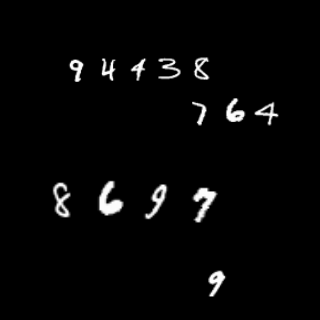 94438
764
8697
9